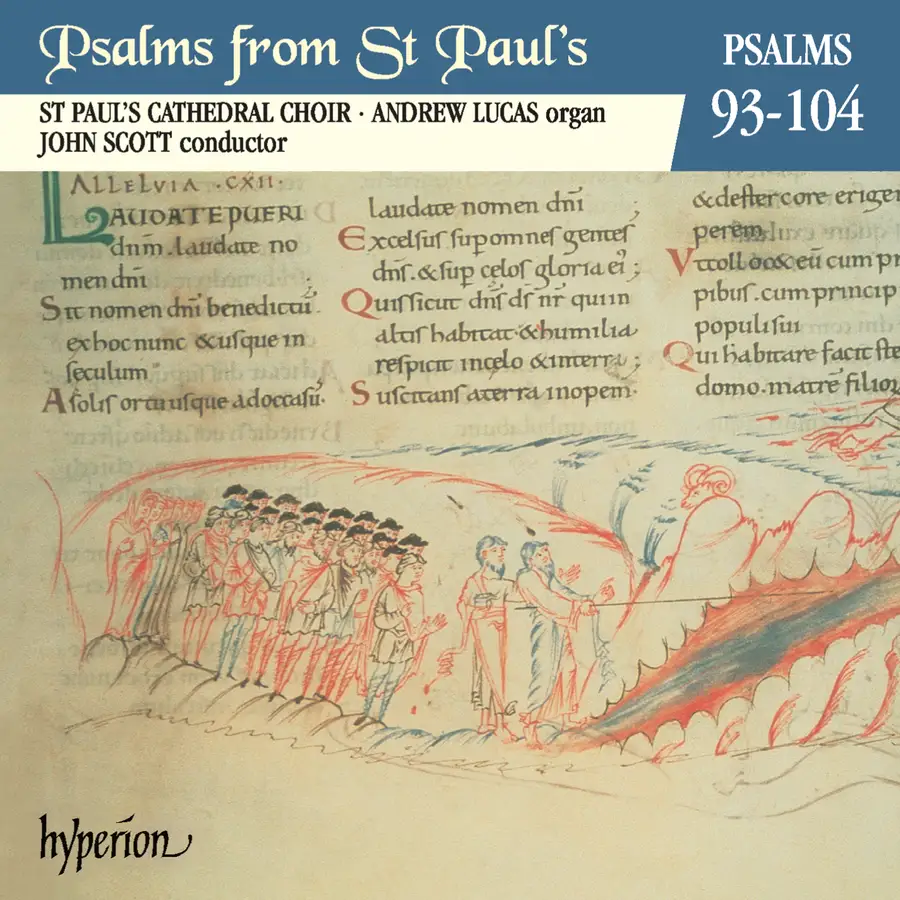 Psalms from St Paul's
PSALMS
93-104
ST PAUL'S CATHEDRAL CHOIR · ANDREW LUCAS organ
JOHN SCOTT conductor
ALLELVIA ·CXII·
LAUDATE PUERI
dnm .laudate no
men dni
Sit nomen dni benedictū.
ex hoc nunc & usque in
seculum
A solis ortu usque ad occasū.
laudate nomen dn̄i ;
Excelsus sup omnes gentes
dn̄s .& sup cęlos gloria ei ;
Quis sicut dn̄s ds̄ nr̄ qui in
altis habitat & humilia
respicit in cęlo & in terra ;
Suscitans a terra inopem
& de stercore erigen
perem
Vt collocet eū cum pr
cipibus . cum princip
populi sui
Qui habitare facit ste
domo . matrē filior
hyperion